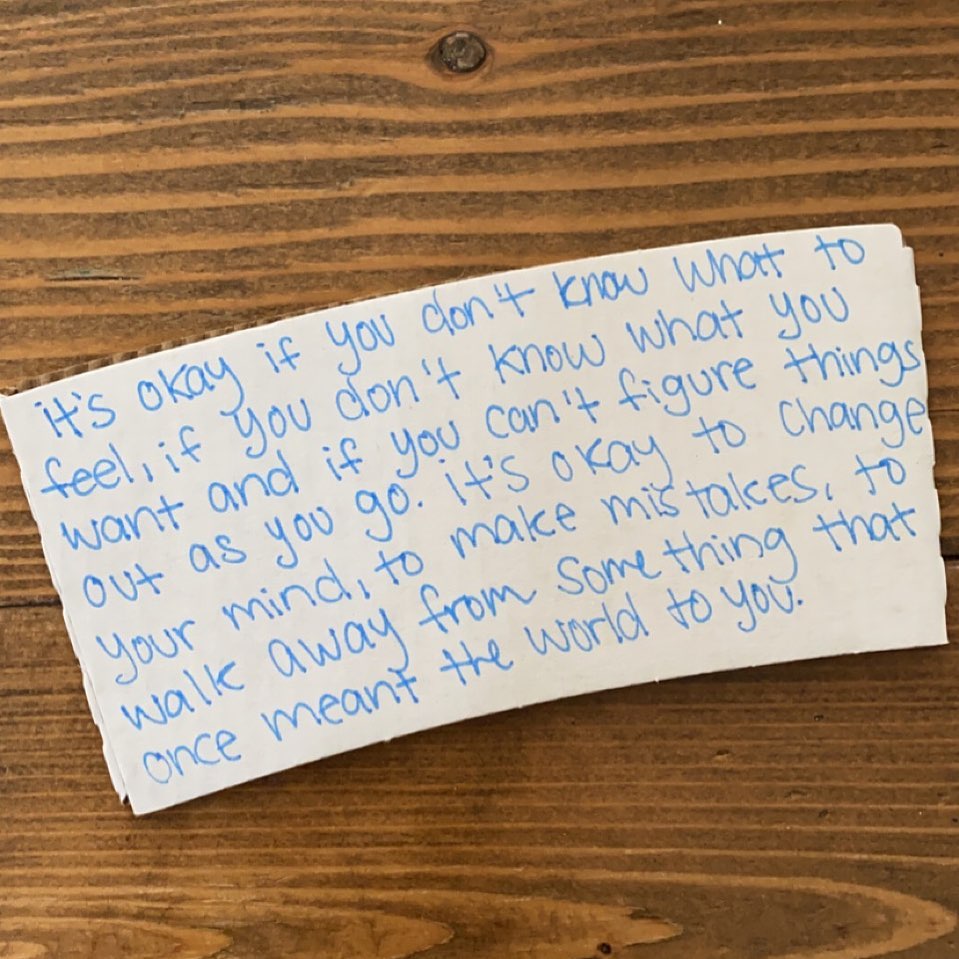 it's okay if you don't know what to
feel, if you don't know what you
want and if you can't figure things
out as you go. it's okay to change
your mind, to make mistakes, to
walk away from something that
once meant the world to you.